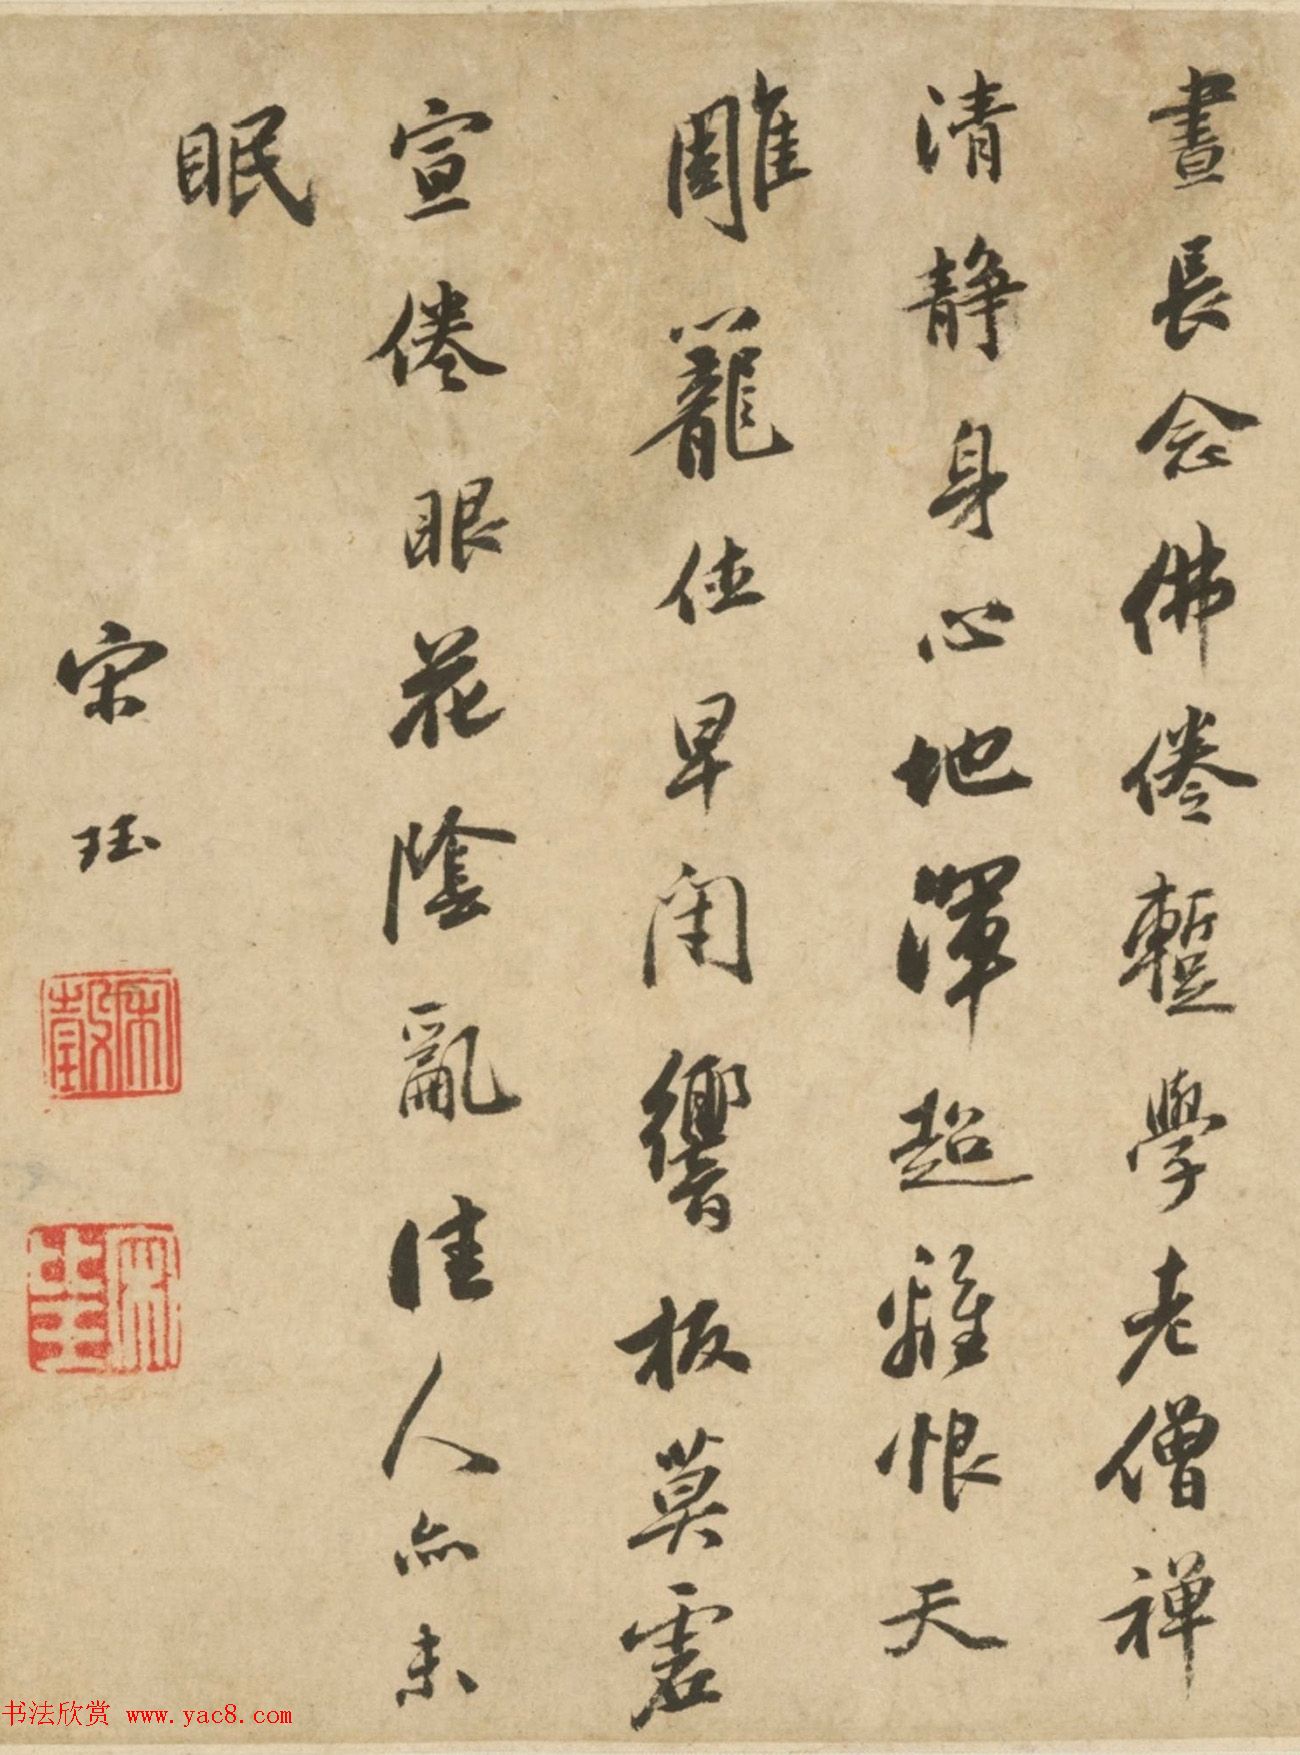 晝長念佛倦蹔學老僧禪
清静身心地渾超離恨天
雕籠住早閉響板莫虛
宣倦眼花陰亂佳人亦未
眠
宋珏
宋瑴
书法欣赏 www.yac8.com